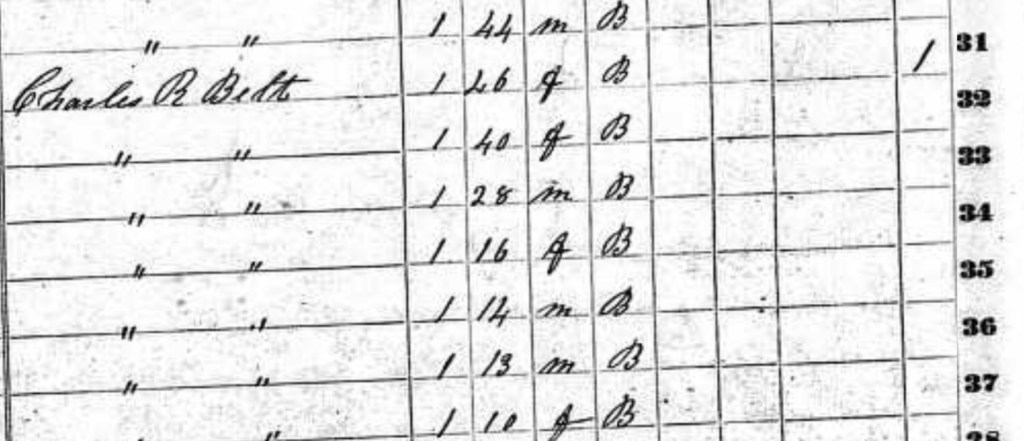 " " 1 44 m B 31
Charles R Belt 1 26 f B 1 32
" " 1 40 f B 33
" " 1 28 m B 34
" " 1 16 f B 35
" " 1 14 m B 36
" " 1 13 m B 37
" 1 10 f B 38